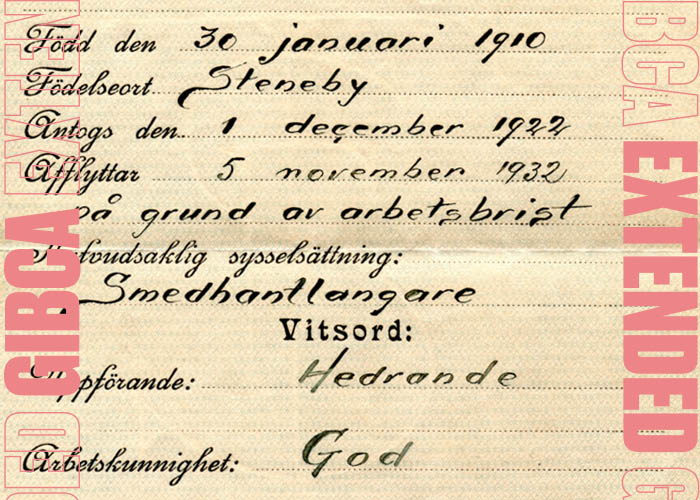 Född den 30 januari 1910
Födelseort Steneby
Antogs den 1 december 1922
Afflyttar 5 november 1932
på grund av arbetsbrist
Hufvudsaklig sysselsättning:
Smedhantlangare
Vitsord:
Uppförande: Hedrande
Arbetskunnighet: God
GIBCA EXTENDED
GIBCA EXTENDED